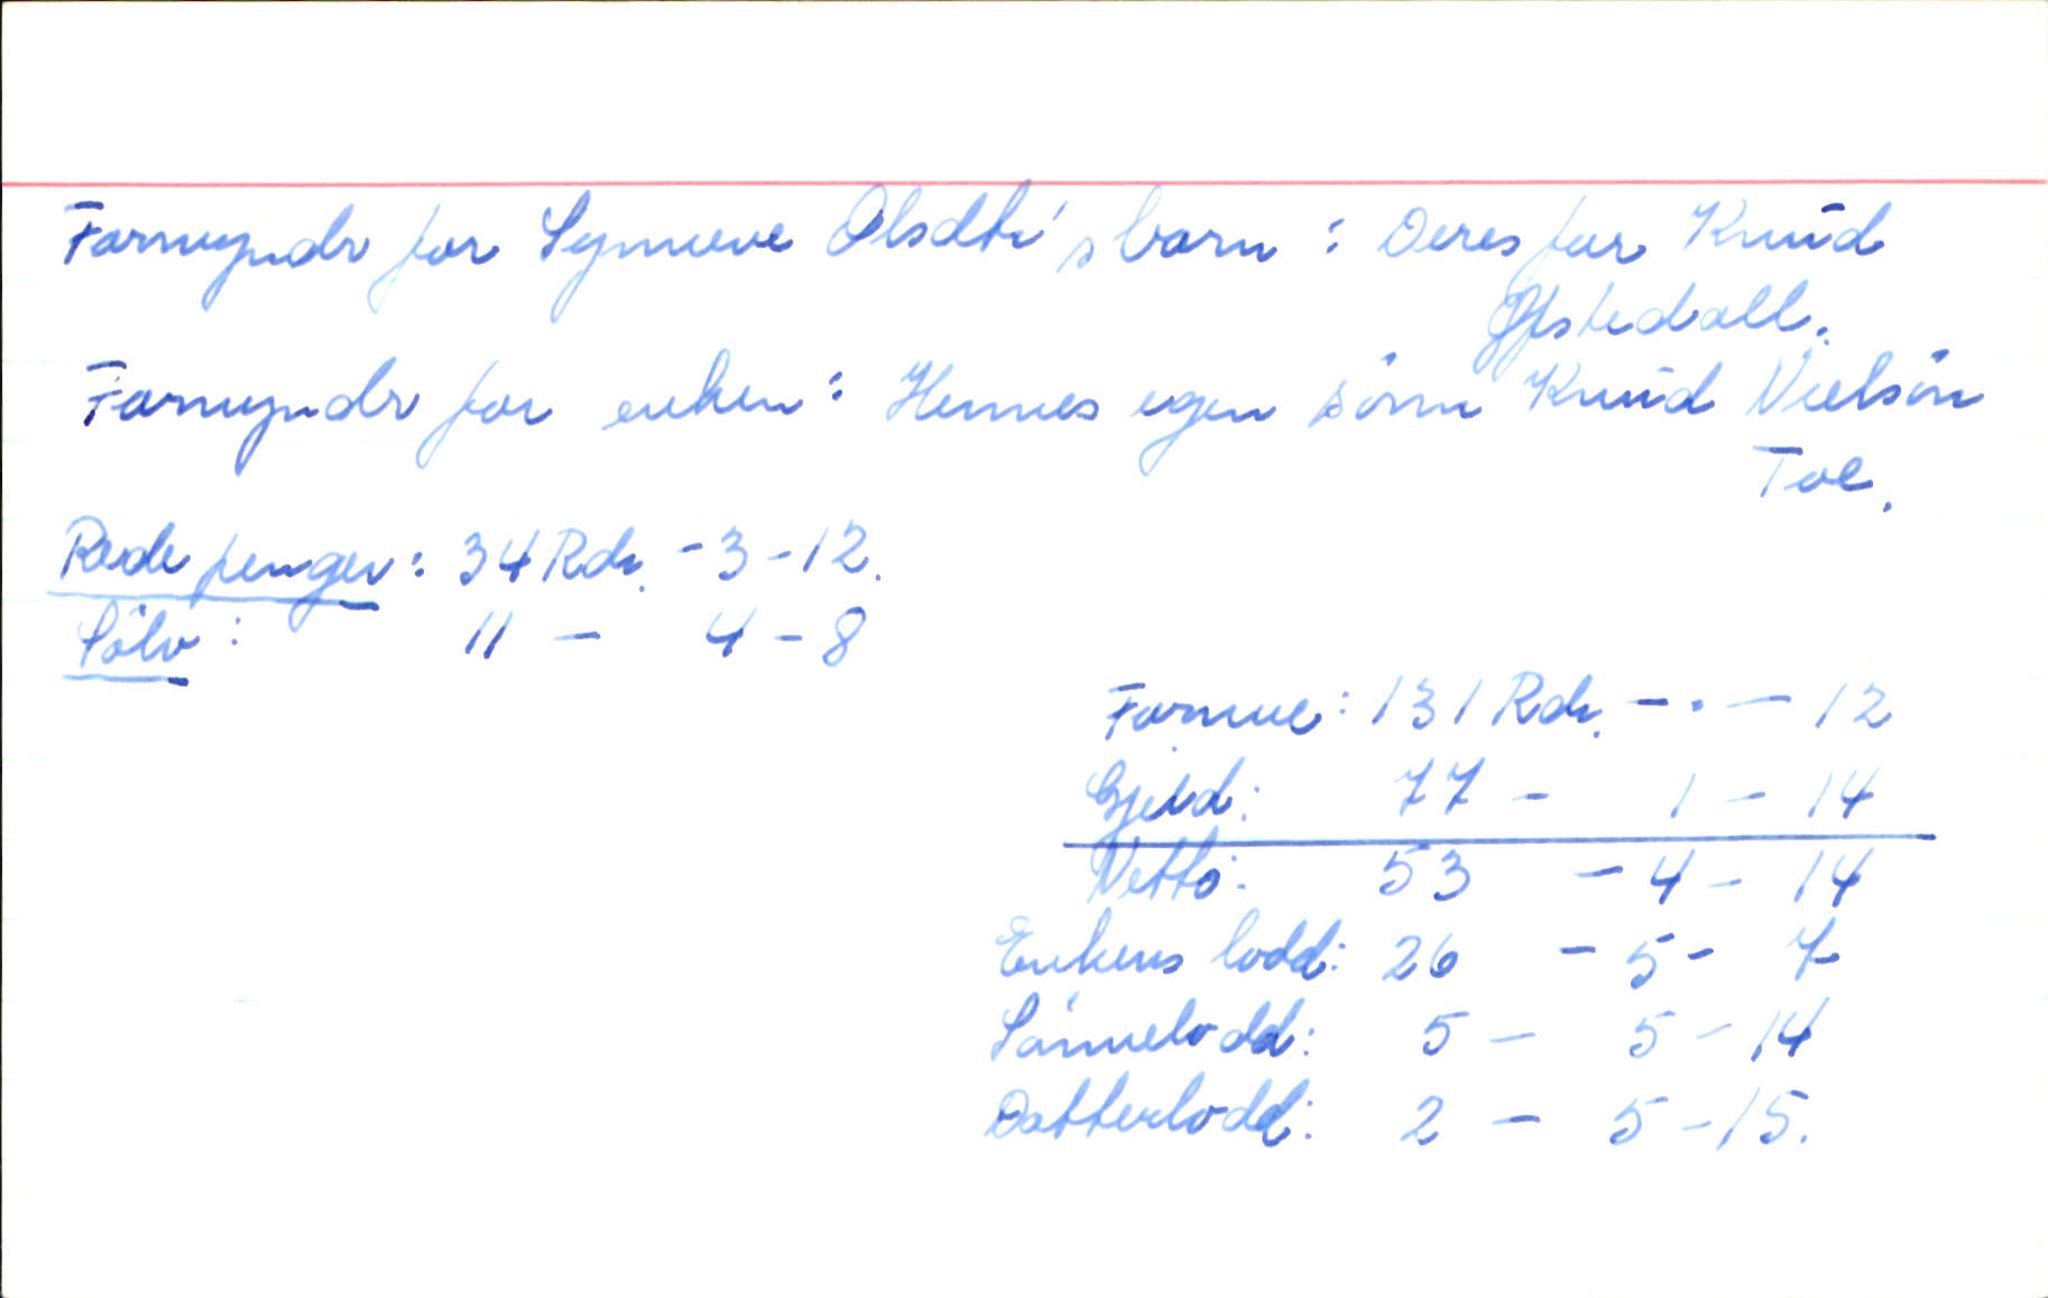 Formyndr for Synneve Olsdtr's barn : Deres far Knud
Ystedall.
Formyndr for enken : Hennes egen sönn Knud Nielsön
Toe.
Rede penger : 34 Rdr. - 3 - 12.
Sölv : 11 - 4 - 8
Formue : 131 Rdr. - . - 12
Gjeld : 77 - 1 - 14
Netto : 53 - 4 - 14
Enkens lodd : 26 - 5 - 7
Sönnelodd : 5 - 5 - 14
Datterlodd : 2 - 5 - 15.